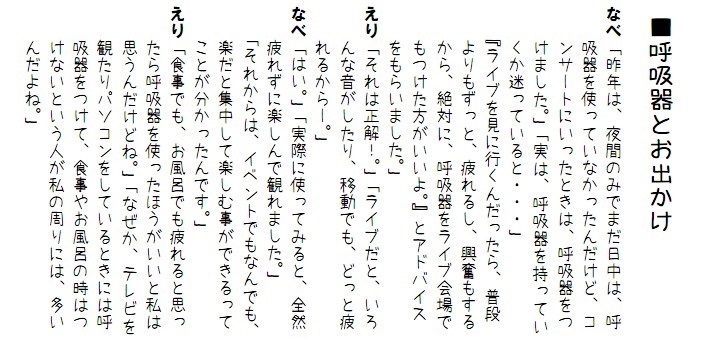 ■呼吸器とお出かけ
なべ「昨年は、夜間のみでまだ日中は、呼
吸器を使っていなかったんだけど、コ
ンサートにいったときは、呼吸器をつ
けました。」「実は、呼吸器を持ってい
くか迷っていると・・・」
『ライブを見に行くんだったら、普段
よりもずっと、疲れるし、興奮もする
から、絶対に、呼吸器をライブ会場で
もつけた方がいいよ。』とアドバイス
をもらいました。」
えり「それは正解！。」「ライブだと、いろ
んな音がしたり、移動でも、どっと疲
れるからー。」
なべ「はい。」「実際に使ってみると、全然
疲れずに楽しんで観れました。」
「それからは、イベントでもなんでも、
楽だと集中して楽しむ事ができるって
ことが分かったんです。」
えり「食事でも、お風呂でも疲れると思っ
たら呼吸器を使ったほうがいいと私は
思うんだけどね。」「なぜか、テレビを
観たりパソコンをしているときには呼
吸器をつけて、食事やお風呂の時はつ
けないという人が私の周りには、多い
んだよね。」